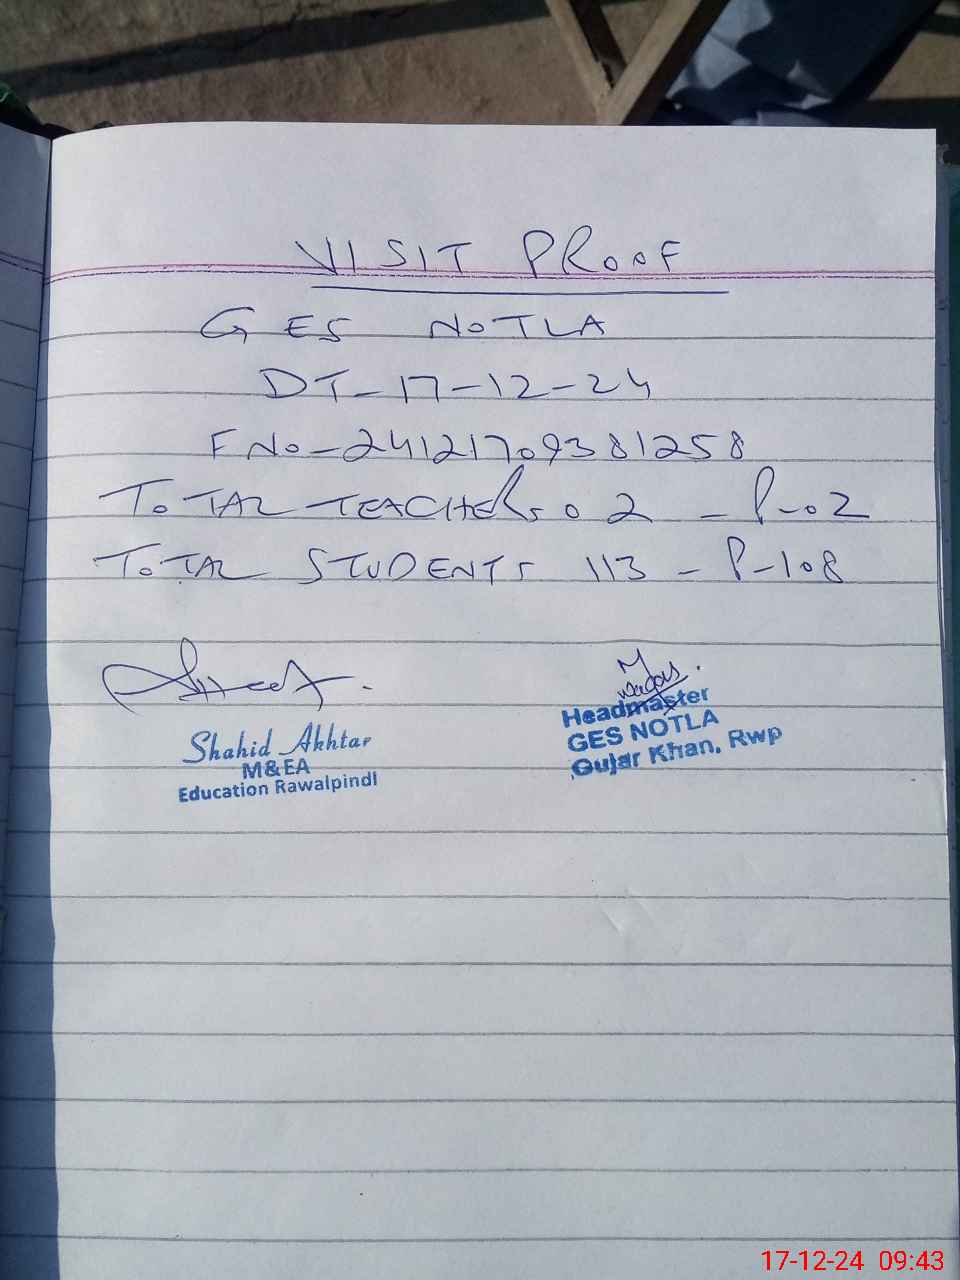 VISIT PROOF
GES NOTLA
DT-17-12-24
F NO-24121709381258
TOTAL TEACHERS 02 - P-02
TOTAL STUDENTS 113 - P-108
Shahid Akhtar
M&EA
Education Rawalpindi
Headmaster
GES NOTLA
Gujar Khan, Rwp
17-12-24 09:43